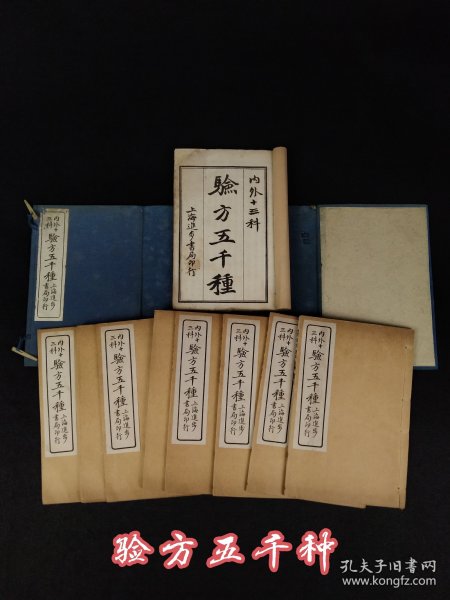 内外十三科
驗方五千種
上海進步書局印行
内外十三科
驗方五千種
上海進步書局印行
内外十三科
驗方五千種
上海進步書局印行
内外十三科
驗方五千種
上海進步書局印行
内外十三科
驗方五千種
上海進步書局印行
内外十三科
驗方五千種
上海進步書局印行
内外十三科
驗方五千種
上海進步書局印行
内外十三科
驗方五千種
上海進步書局印行
验方五千种
孔夫子旧书网
www.kongfz.com